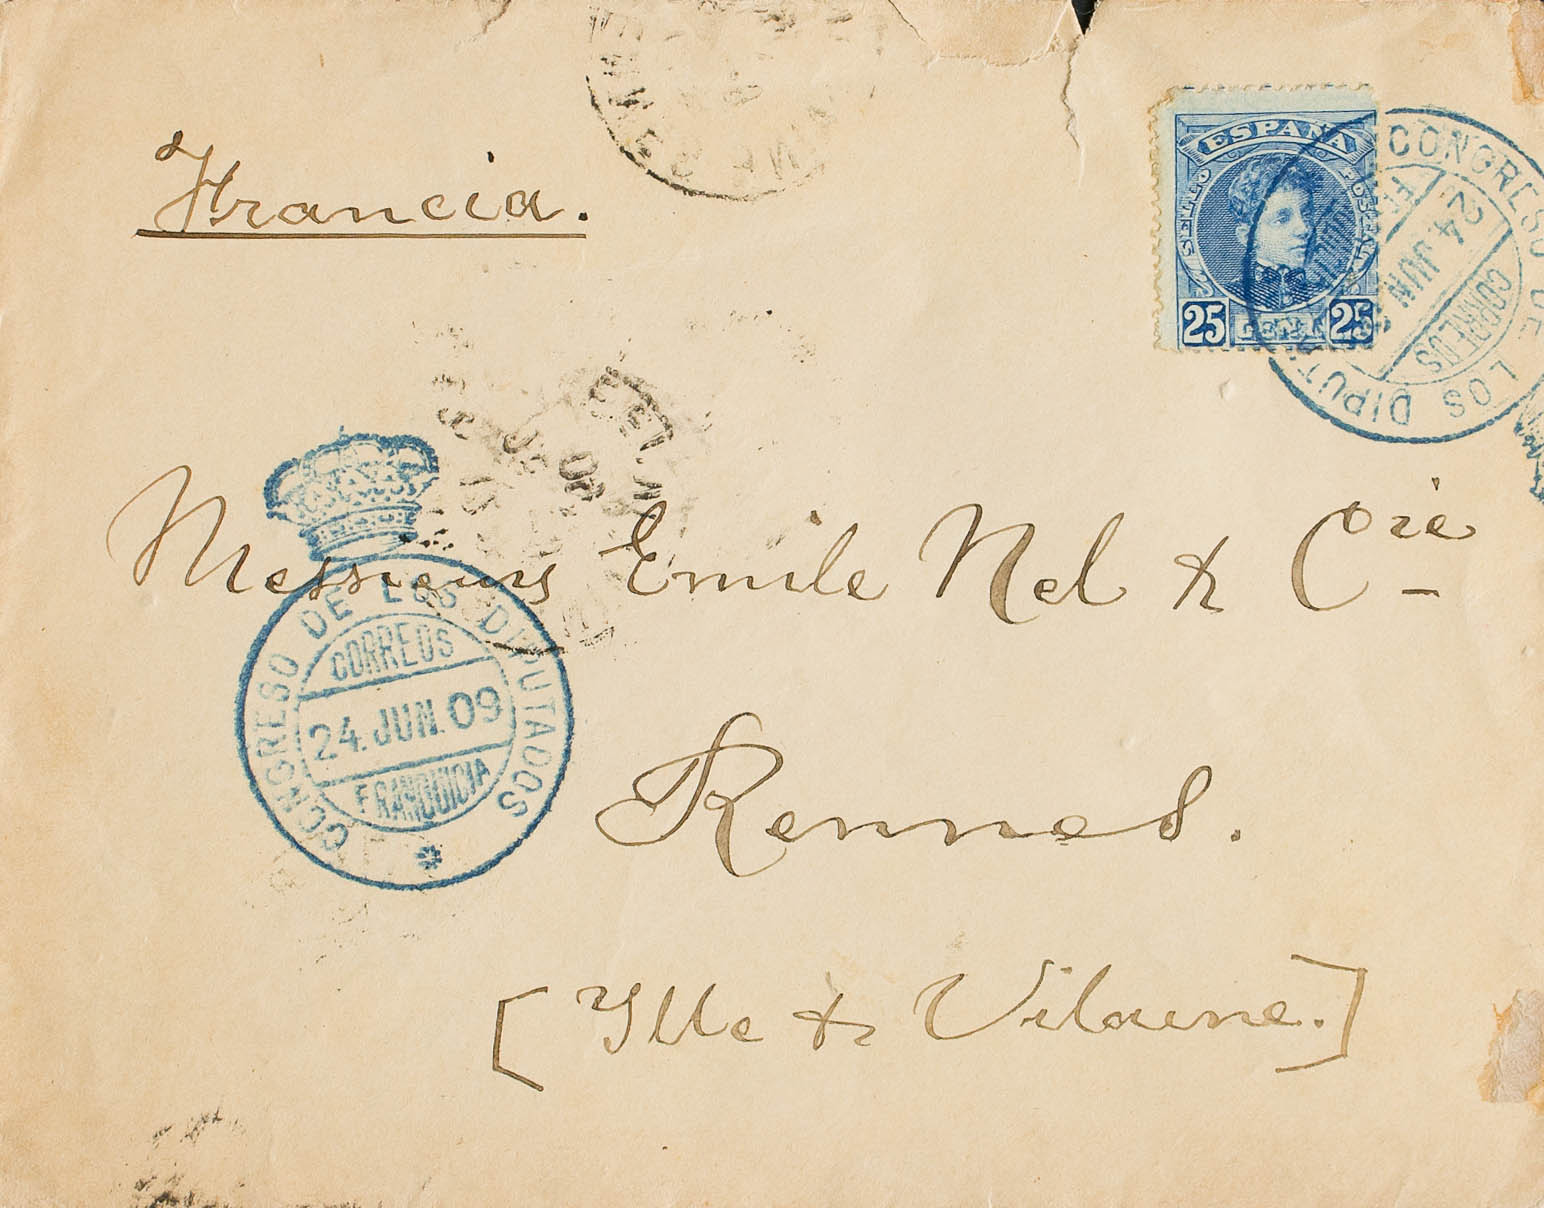 Francia.
ESPAÑA
SELLO POSTAL
25 CENT 25
CONGRESO DE LOS DIPUT
24 JUN
CORREOS
Messieurs Emile Nel & Cie
CONGRESO DE LOS DIPUTADOS
CORREOS
24. JUN. 09
FRANQUICIA
Rennes.
[Ylle & Vilaine.]